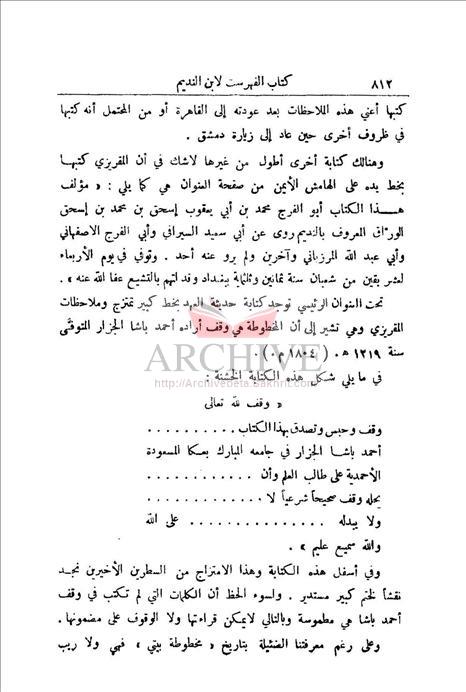 ٨١٢ كتاب الفهرست لابن النديم
كتبها أعني هذه الملاحظات بعد عودته إلى القاهرة أو من المحتمل أنه كتبها
في ظروف أخرى حين عاد إلى زيارة دمشق .
وهنالك كتابة أخرى أطول من غيرها لاشك في أن المقريزي كتبها
بخط يده على الهامش الأيمن من صفحة العنوان هي كما يلي : « مؤلف
هذا الكتاب أبو الفرج محمد بن أبي يعقوب إسحق بن محمد بن إسحق
الورّاق المعروف بالنديم روى عن أبي سعيد السيرافي وأبي الفرج الاصفهاني
وأبي عبد الله المرزباني وآخرين ولم يرو عنه أحد . وتوفي في يوم الأربعاء
لعشر بقين من شعبان سنة ثمانين وثلثماية ببغداد وقد اتهم بالتشيع عفا الله عنه » .
تحت العنوان الرئيسي توجد كتابة حديثة العهد بخط كبير تمتزج وملاحظات
المقريزي وهي تشير إلى أن المخطوطة هي وقف أراده أحمد باشا الجزار المتوفَّى
سنة ١٢١٩ هـ . ( ١٨٠٤ م . ) .
ARCHIVE
http://Archivebeta.Sakhrit.com
في ما يلي شكل هذه الكتابة الخشنة :
« وقف لله تعالى
وقف وحبس وتصدق بهذا الكتاب . . . . . . . . . .
أحمد باشا الجزار في جامعه المبارك بعكا المسعودة
الأحمدية على طالب العلم وأن . . . . . . . . . . . .
يحله وقف صحيحاً شرعياً لا . . . . . . . . . . . . .
ولا يبدله . . . . . . . . . . . . . . . على الله
والله سميع عليم » .
وفي أسفل هذه الكتابة وهذا الامتزاج من السطرين الأخيرين نجد
نقشاً لختم كبير مستدير . ولسوء الحظ أن الكلمات التي لم تكتب في وقف
أحمد باشا هي مطموسة وبالتالي لايمكن قراءتها ولا الوقوف على مضمونها .
وعلى رغم معرفتنا الضئيلة بتاريخ « مخطوطة بيتي » فهي ولا ريب